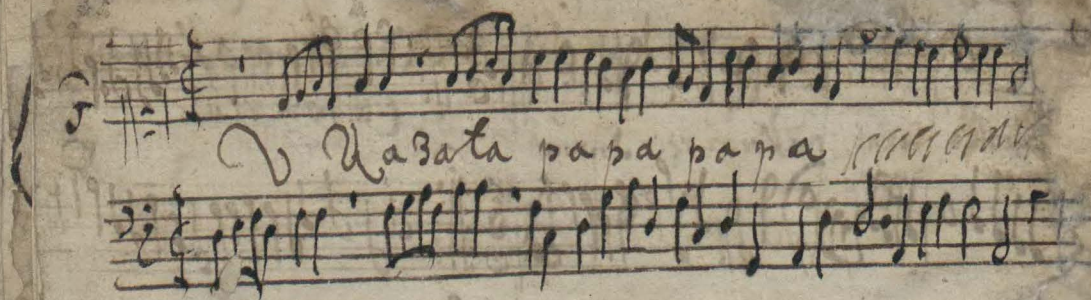 V Uazata papa papa